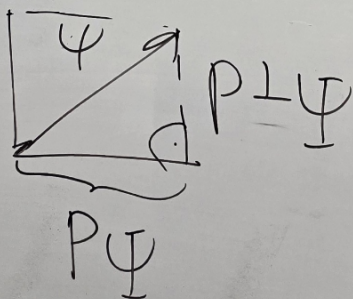 ψ
P⊥Ψ
PΨ